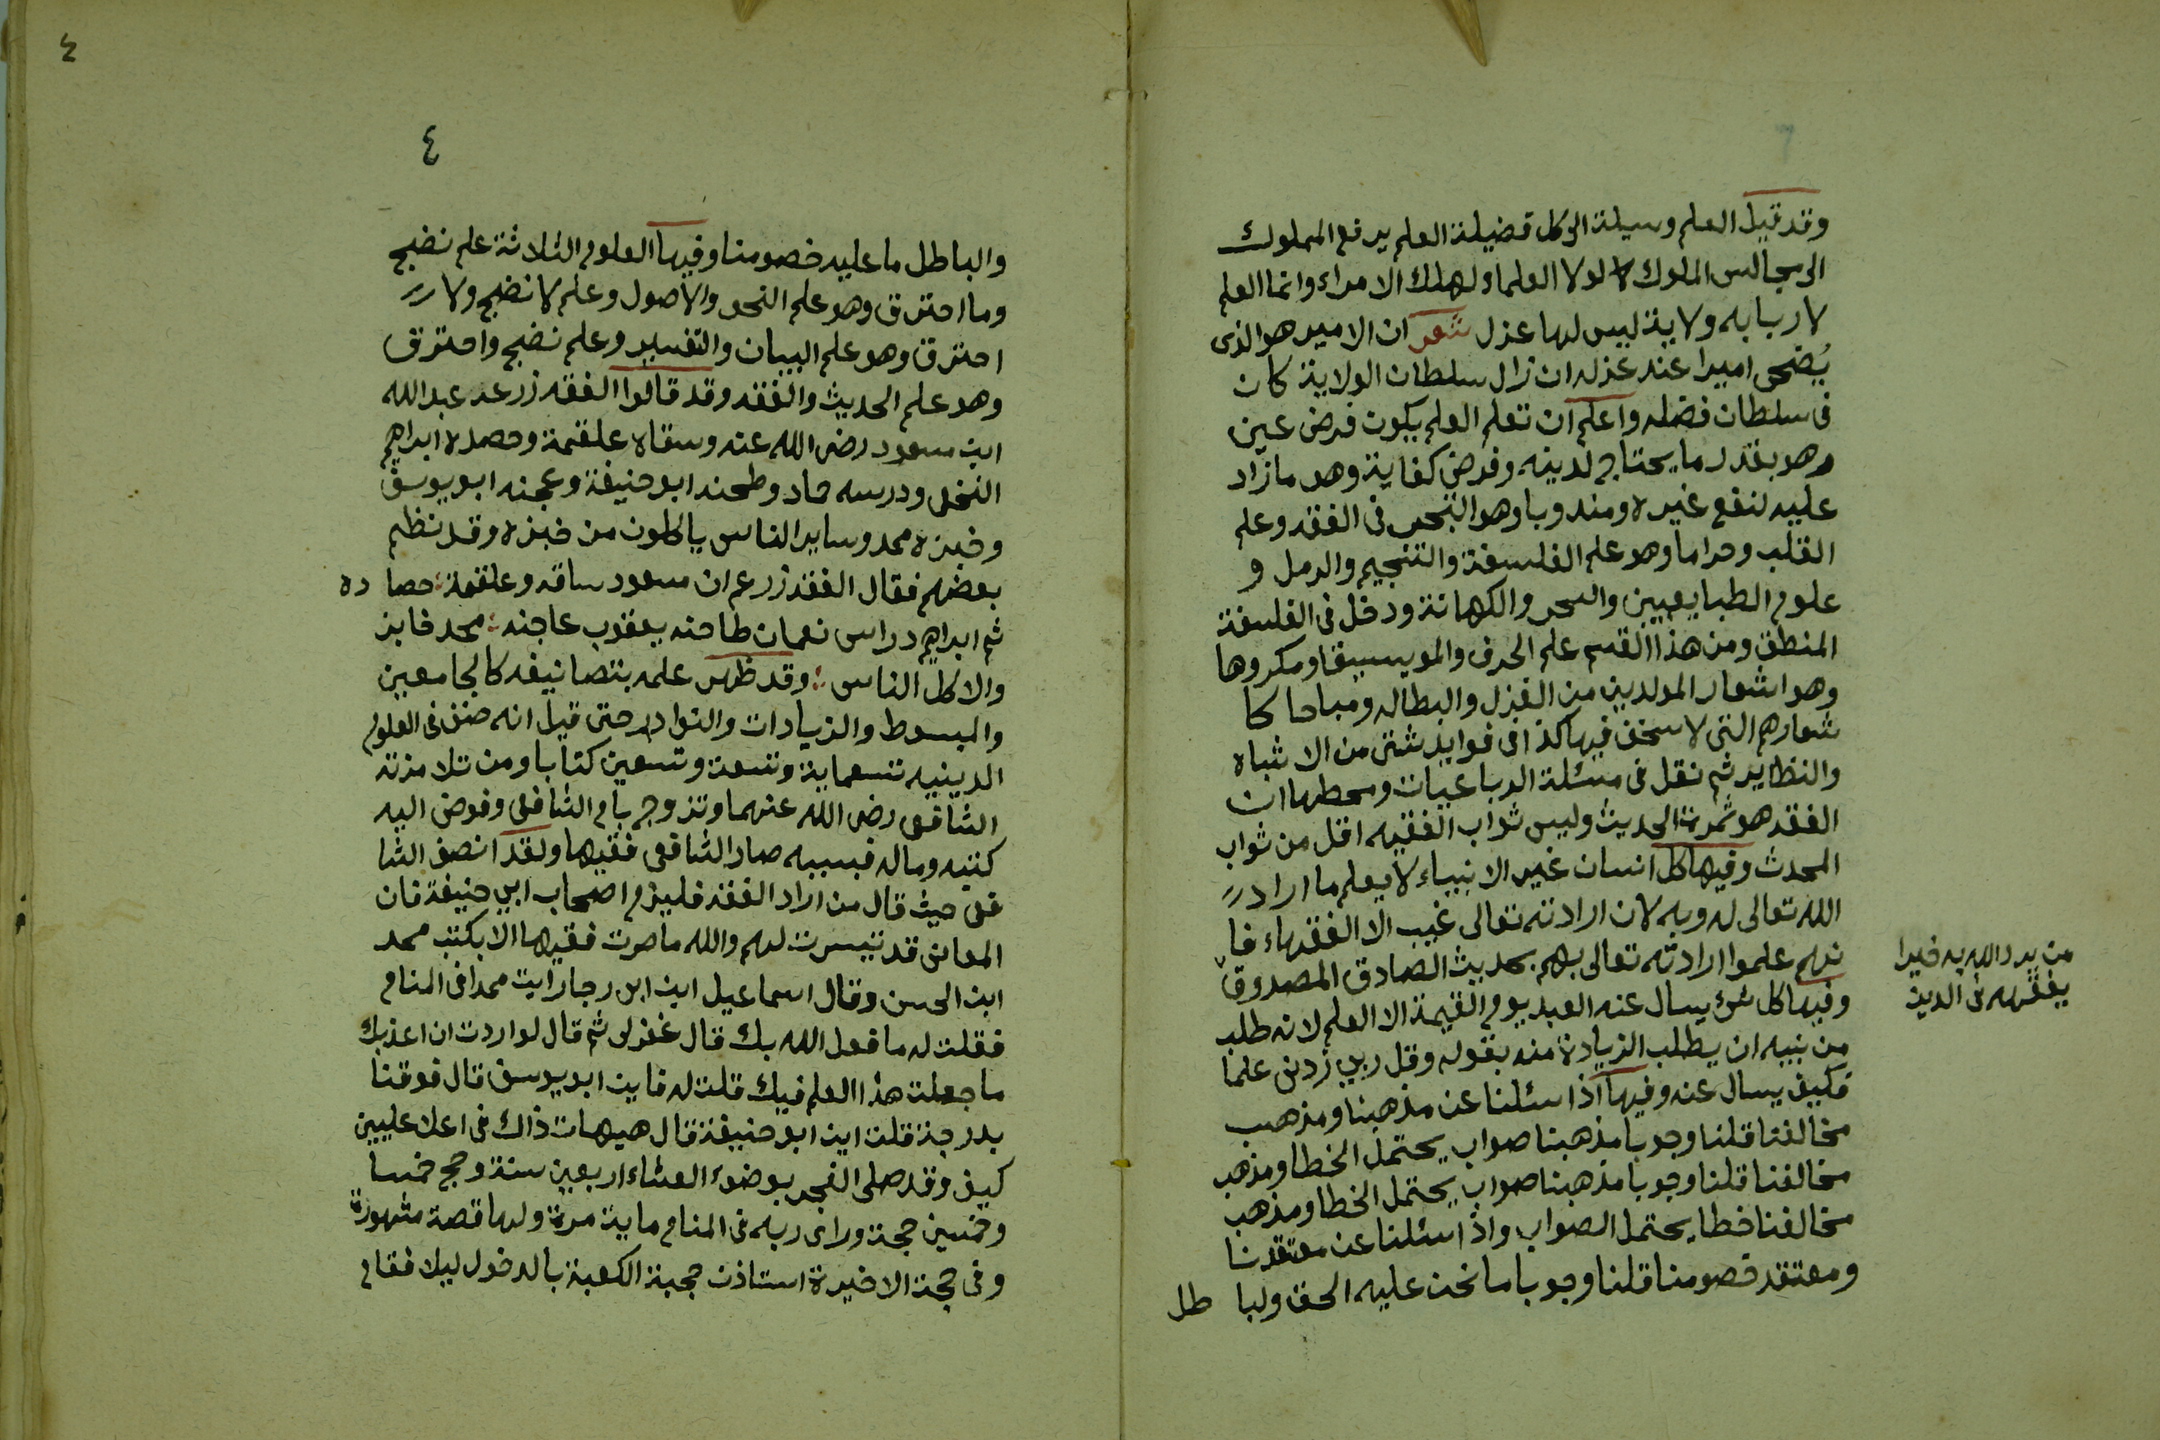 وقد قيل العلم وسيلة الى كل فضيلة العلم يرفع المملوك
الى مجالس الملوك لولا العلماء لهلك الامراء وانما العلم
لاربابه ولاية ليس لها عزل شعر ان الامير هو الذى
يُضحى اميرا عند عزله ان زال سلطان الولاية كان
فى سلطان فضله واعلم ان تعلم العلم يكون فرض عين
وهو بقدر ما يحتاج لدينه وفرض كفاية وهو ما زاد
عليه لنفع غيره ومندوبا وهو التبحر فى الفقه وعلم
القلب وحراما وهو علم الفلسفة والتنجيم والرمل و
علوم الطبايعيين والسحر والكهانة ودخل فى الفلسفة
المنطق ومن هذا القسم علم الحرف والمويسيقا ومكروها
وهو اشعار المولدين من الغزل والبطاله ومباحا كا
شعارهم التى لا سخف فيها كذا فى فوايد شتى من الاشباه
والنظاير ثم نقل فى مسئلة الرباعيات ومحطها ان
الفقه هو ثمرة الحديث وليس ثواب الفقيه اقل من ثواب
المحدث وفيها كل انسان غير الانبياء لا يعلم ما اراد
الله تعالى له وبه لان ارادته تعالى غيب الا الفقهاء فا
نهم علموا ارادته تعالى بهم بحديث الصادق المصدوق
من يرد الله به خيرا
يفقهه فى الدين
وفيها كل شئ يسال عنه العبد يوم القيمة الا العلم لانه طلب
من نبيه ان يطلب الزيادة منه بقوله وقل ربي زدنى علما
فكيف يسال عنه وفيها اذا سئلنا عن مذهبنا ومذهب
مخالفنا قلنا وجوبا مذهبنا صواب يحتمل الخطا ومذهب
مخالفنا قلنا وجوبا مذهبنا صواب يحتمل الخطا ومذهب
مخالفنا خطا يحتمل الصواب واذا سئلنا عن معتقدنا
ومعتقد خصومنا قلنا وجوبا ما نحن عليه الحق ولبا طل
٤
٤
والباطل ما عليه خصومنا وفيها العلوم الثلاثة علم نضج
وما احترق وهو علم النحو والاصول وعلم لا نضج ولا
احترق وهو علم البيان والتفسير وعلم نضج واحترق
وهو علم الحديث والفقه وقد قالوا الفقه زرعه عبد الله
ابن مسعود رضى الله عنه وسقاه علقمة وحصده ابراهيم
النخعى ودرسه حماد وطحنه ابو حنيفة وعجنه ابو يوسف
وخبزه محمد وساير الناس ياكلون من خبزه وقد نظم
بعضهم فقال الفقه زرع ان مسعود ساقه وعلقمة حصا ده
ثم ابراهيم دراس نعمان طاحنه يعقوب عاجنه محمد خابز
والاكل الناس وقد ظهر علمه بتصانيفه كالجامعين
والمبسوط والزيادات والنوادر حتى قيل انه صنف فى العلوم
الدينيه تسعماية وتسعة وتسعين كتابا ومن تلامذته
الشافعى رضى الله عنهما وتزوج بام الشافعى وفوض اليه
كتبه وماله فبسببه صار الشافعى فقيها ولقد انصف الشا
فعى حيث قال من اراد الفقه فليزم اصحاب ابي حنيفة فان
المعانى قد تيسرت لهم والله ما صرت فقيها الا بكتب محمد
ابن الحسن وقال اسماعيل ابن ابى رجا رايت محمدا فى المنام
فقلت له ما فعل الله بك قال غفر لى ثم قال لو اردت ان اعذبك
ما جعلت هذا العلم فيك قلت له فاين ابو يوسف قال فوقنا
بدرجة قلت اين ابو حنيفة قال هيهات ذاك فى اعلا عليين
كيف وقد صلى الفجر بوضوء العشاء اربعين سنة وحج خمسا
وخمسين حجة وراى ربه فى المنام ماية مرة ولها قصة مشهورة
وفى حجة الاخيرة استاذن حجبة الكعبة بالدخول ليلا فقام